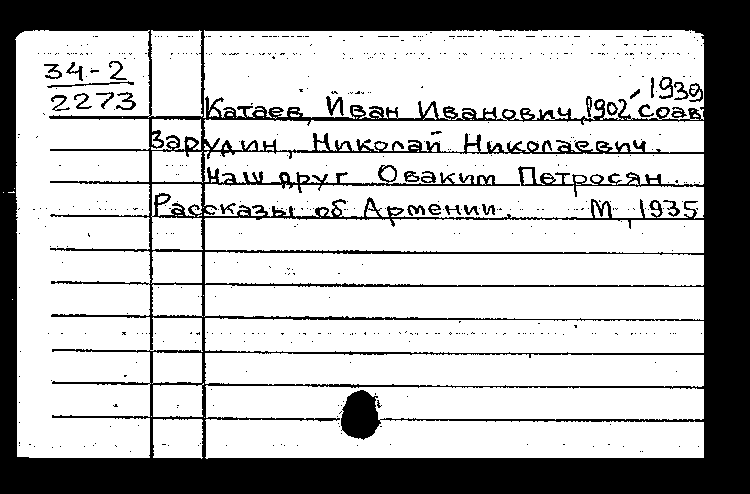 34-2
2273
- 1939
Катаев, Иван Иванович, 1902 соавт
Зарудин, Николай Николаевич.
Наш друг Оваким Петросян.
Рассказы об Армении. М, 1935